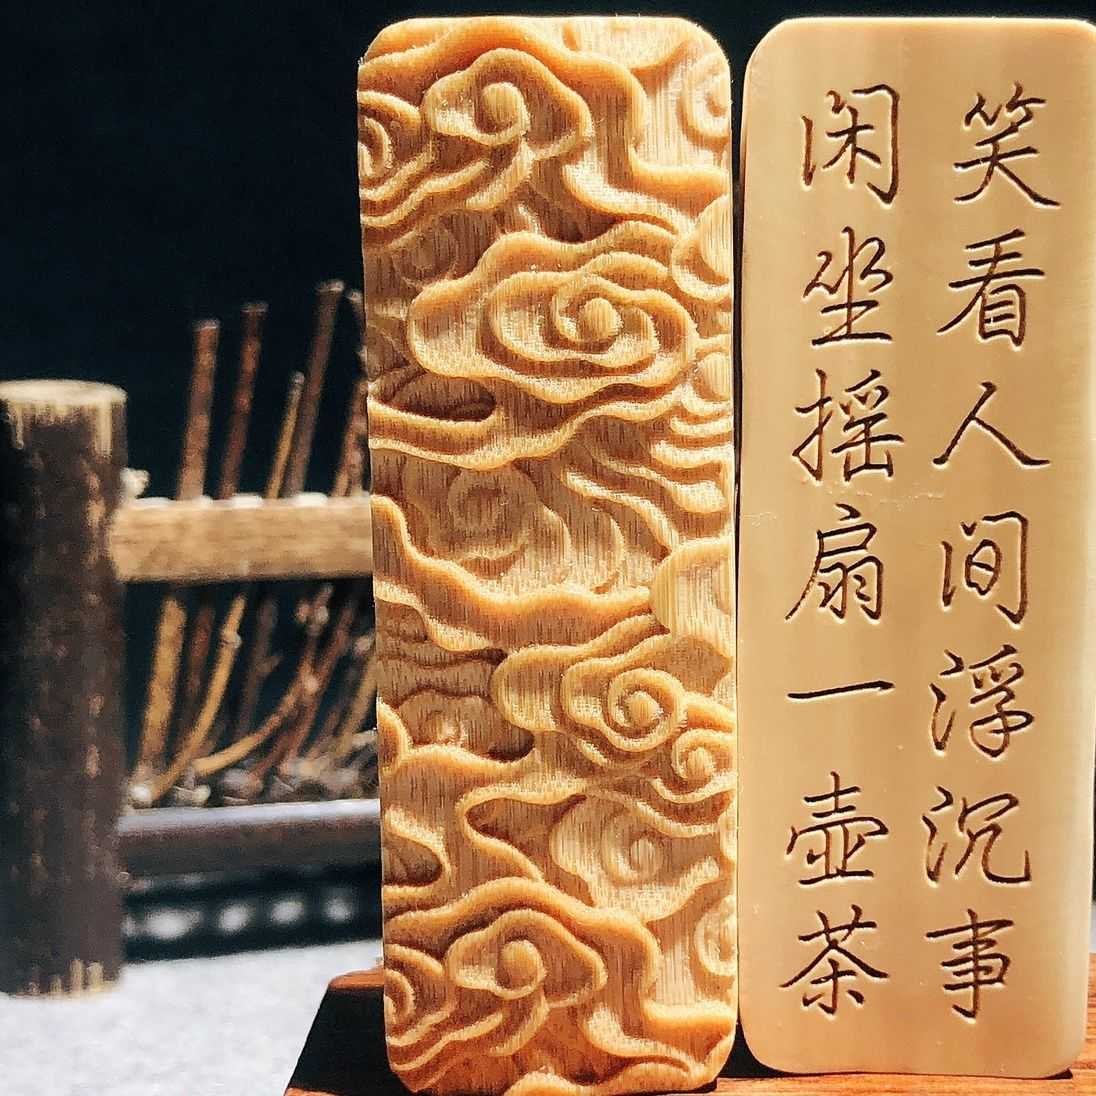 笑看人间浮沉事
闲坐摇扇一壶茶